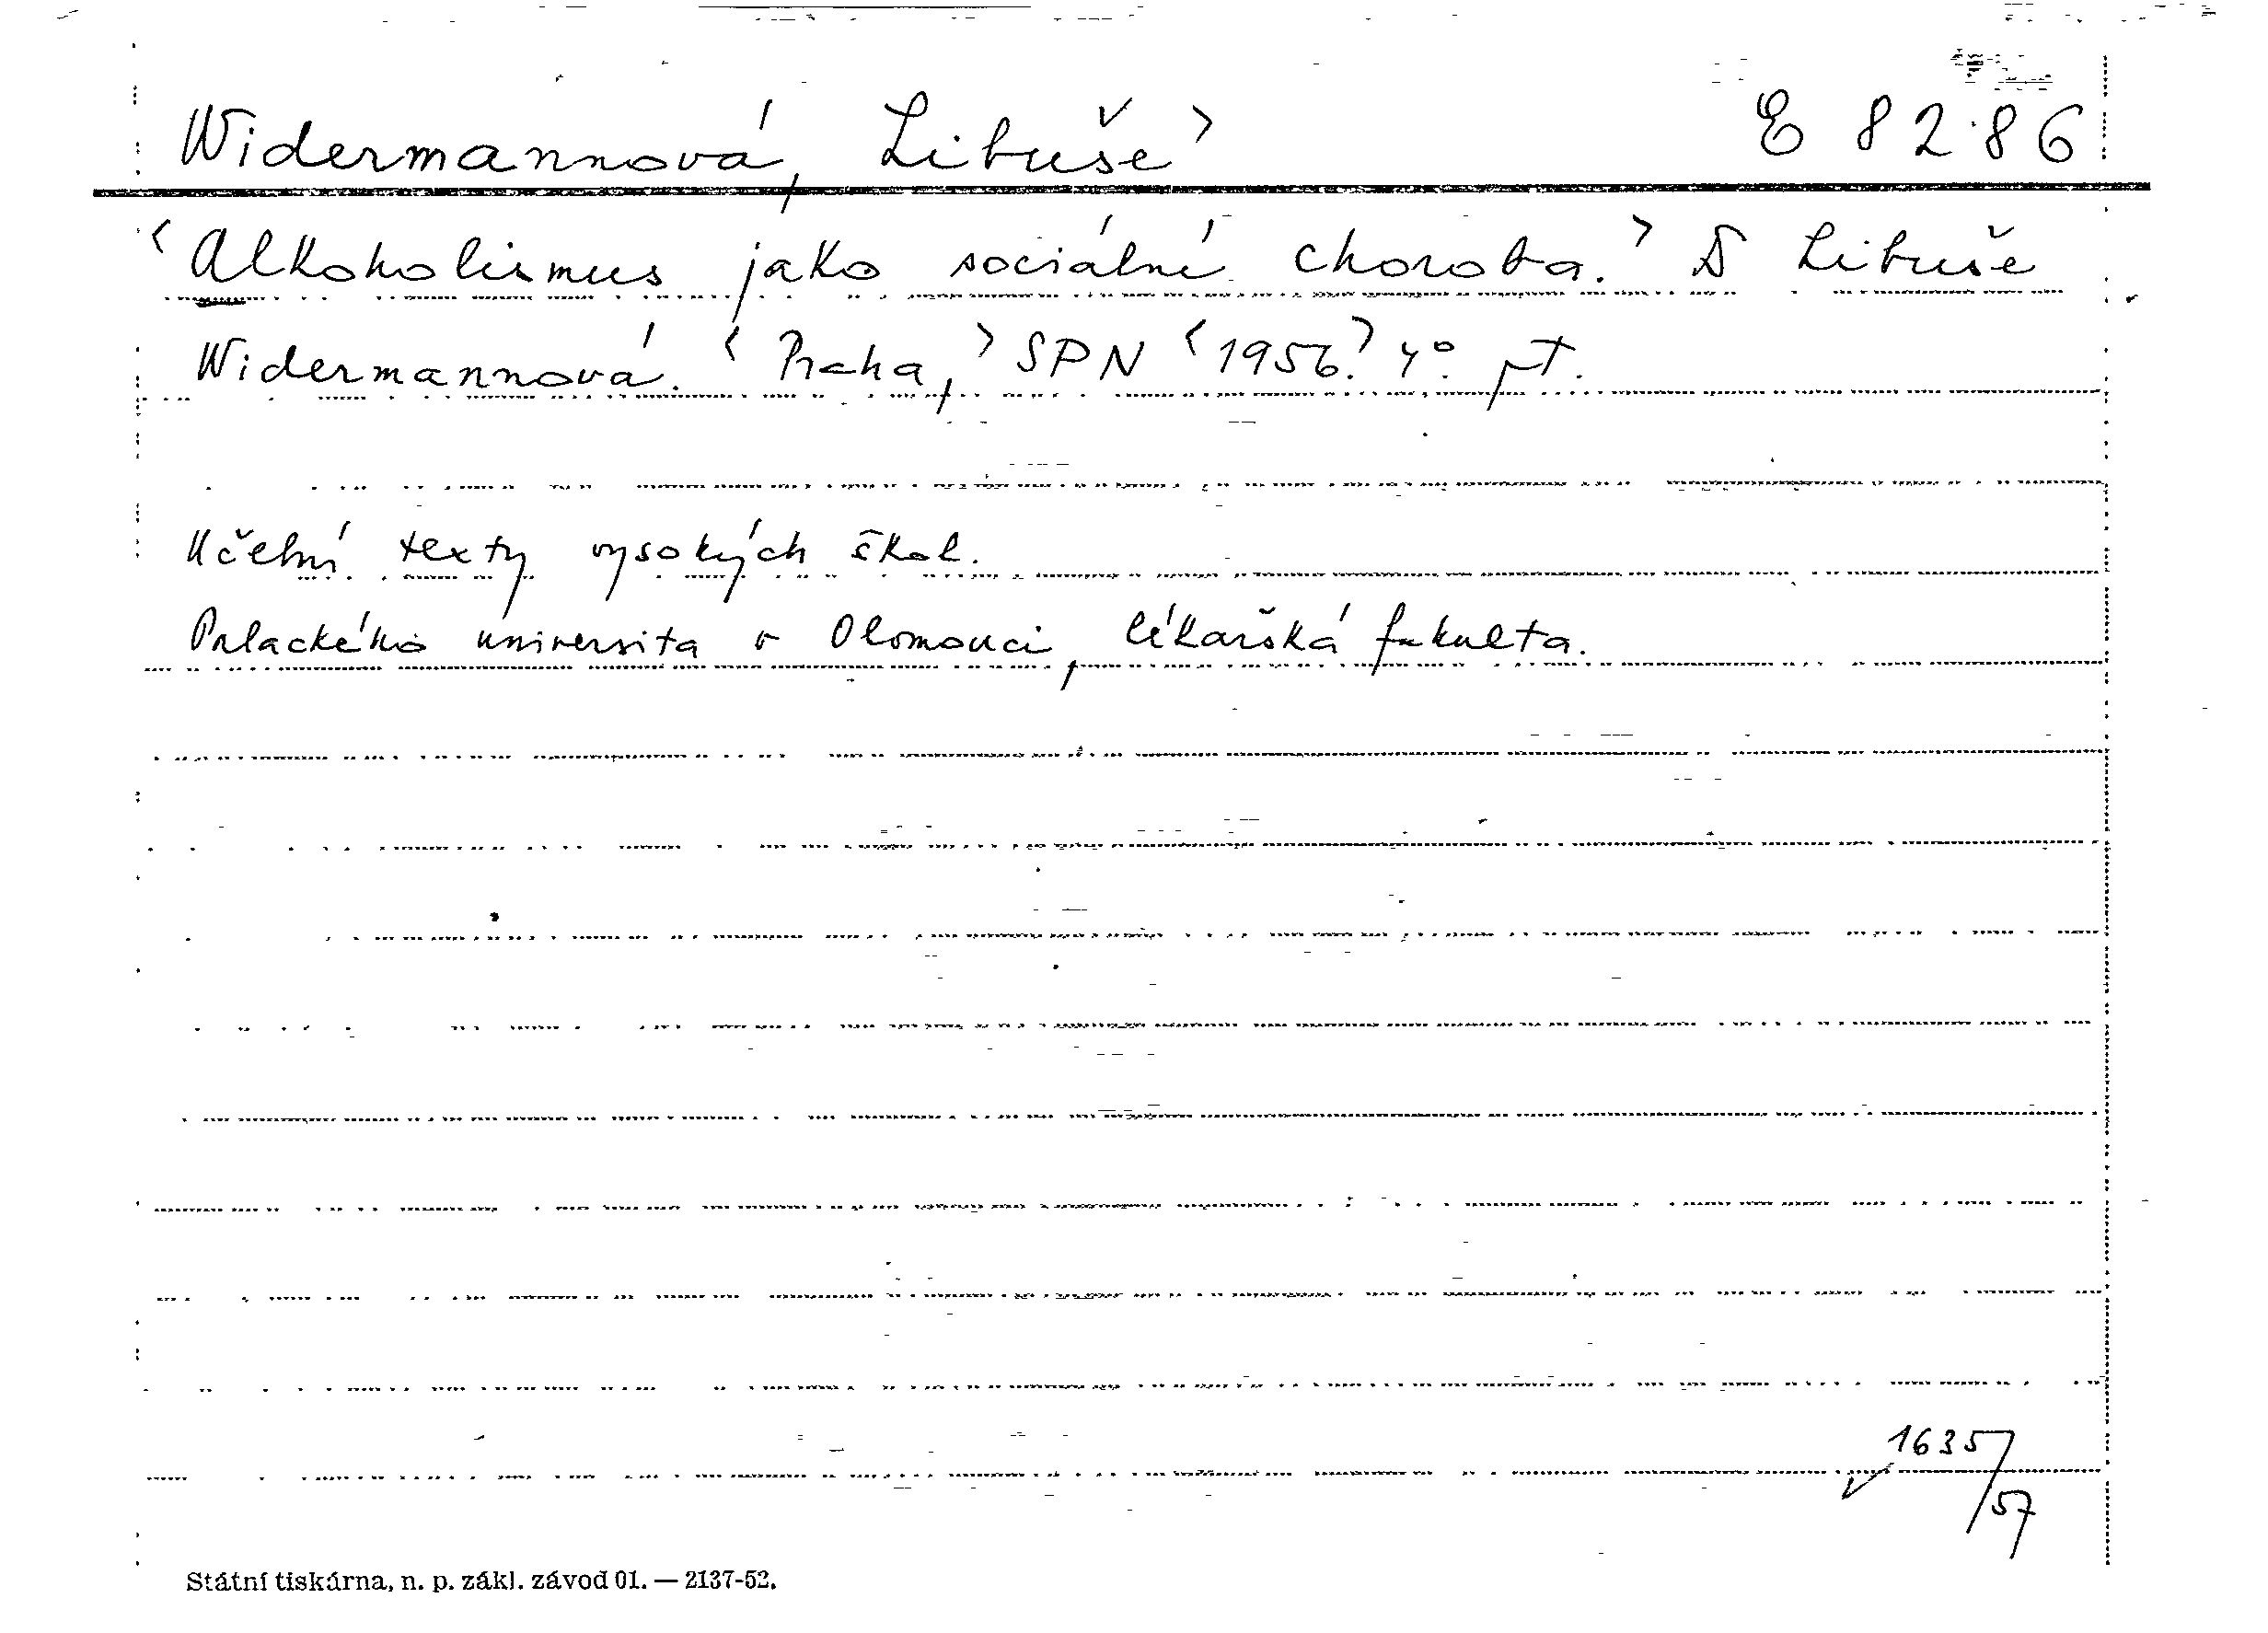 Widermannová, Libuše> E 8286
<Alkoholismus jako sociální choroba.> Libuše
Widermannová. <Praha,> SPN <1956.> 4°.
Učební texty vysokých škol.
Palackého universita v Olomouci, lékařská fakulta.
1635/57
Státní tiskárna, n. p. zákl. závod 01. — 2137-52.